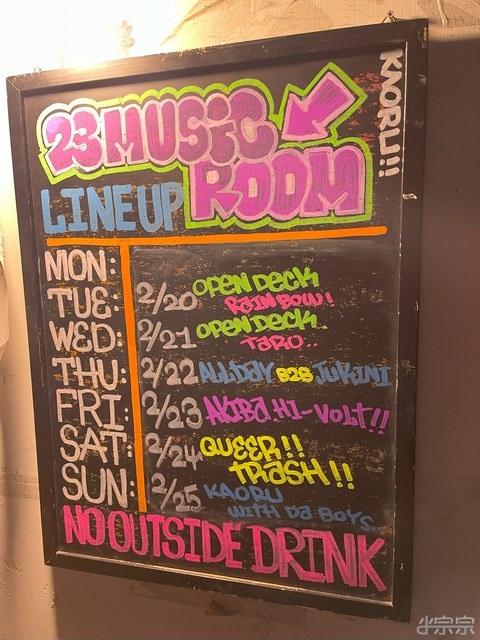 23 MUSIC
ROOM
KAORU!!!
LINEUP
MON:
TUE: 2/20 OPEN DECK
RAINBOW!
WED: 2/21 OPEN DECK
TARO..
THU: 2/22 ALLDAY B2B JUKIMI
FRI: 2/23 AKIBA HI-VOLT!!
SAT: 2/24 QUEER!!
TRASH!!
SUN: 2/25 KAORU
WITH DA BOYS
NO OUTSIDE DRINK
小宗宗